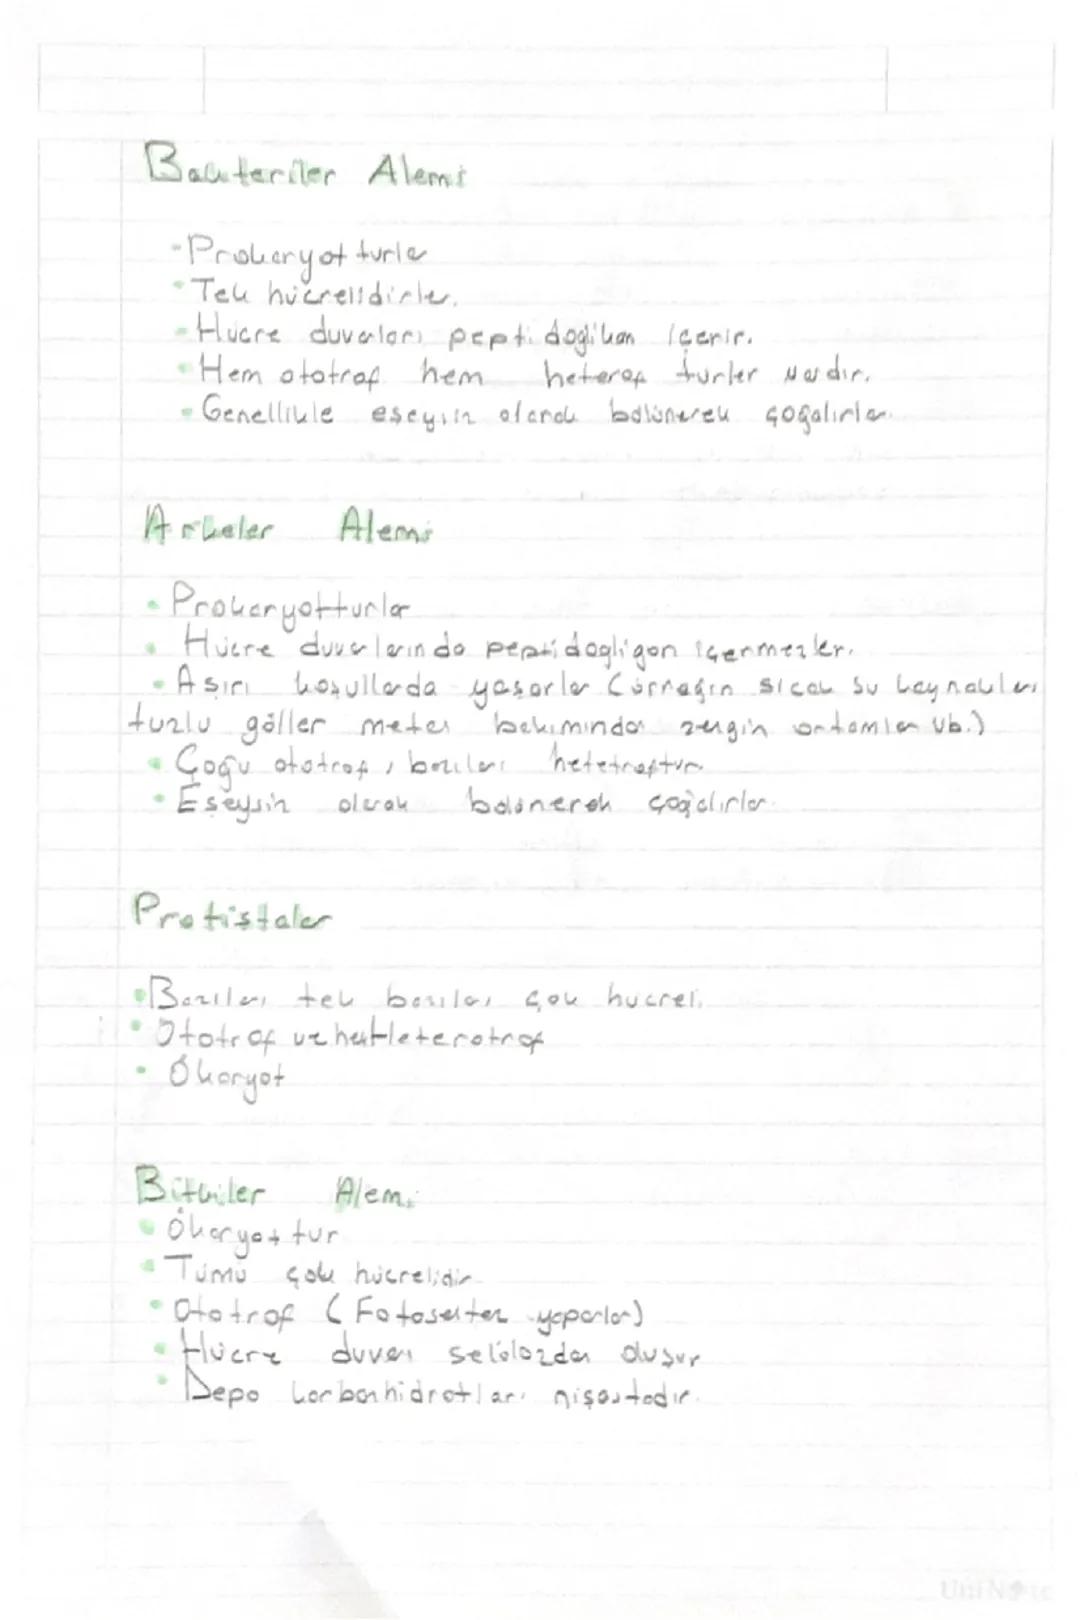 Bakteriler Alemi
Prokaryot turlar
Tek hücrelidirler.
Hücre duvarları peptidoglikan içerir.
Hem ototrof hem heterof türler vardır.
Genellikle eşeysiz olarak bölünerek çoğalırlar.
Arkeler Alemi
Prokaryotturlar
Hücre duvarlarında peptidogligan içermezler.
Aşırı koşullarda yaşarlar (örneğin sıcak su kaynakları
tuzlu göller metan bakımından zengin ortamlar vb.)
Çoğu ototrof, bazıları hetetroftur
Eşeysiz olarak bölünerek çoğalırlar.
Protistalar
Bazıları tek bazıları çok hücreli
Ototrof ve heterotrof
Ökaryot
Bitkiler Alemi
Ökaryottur
Tümü çok hücrelidir
Ototrof (Fotosentez yaparlar)
Hücre duvarı selülozdan oluşur
Depo karbonhidratları nişastadır.
UniNote